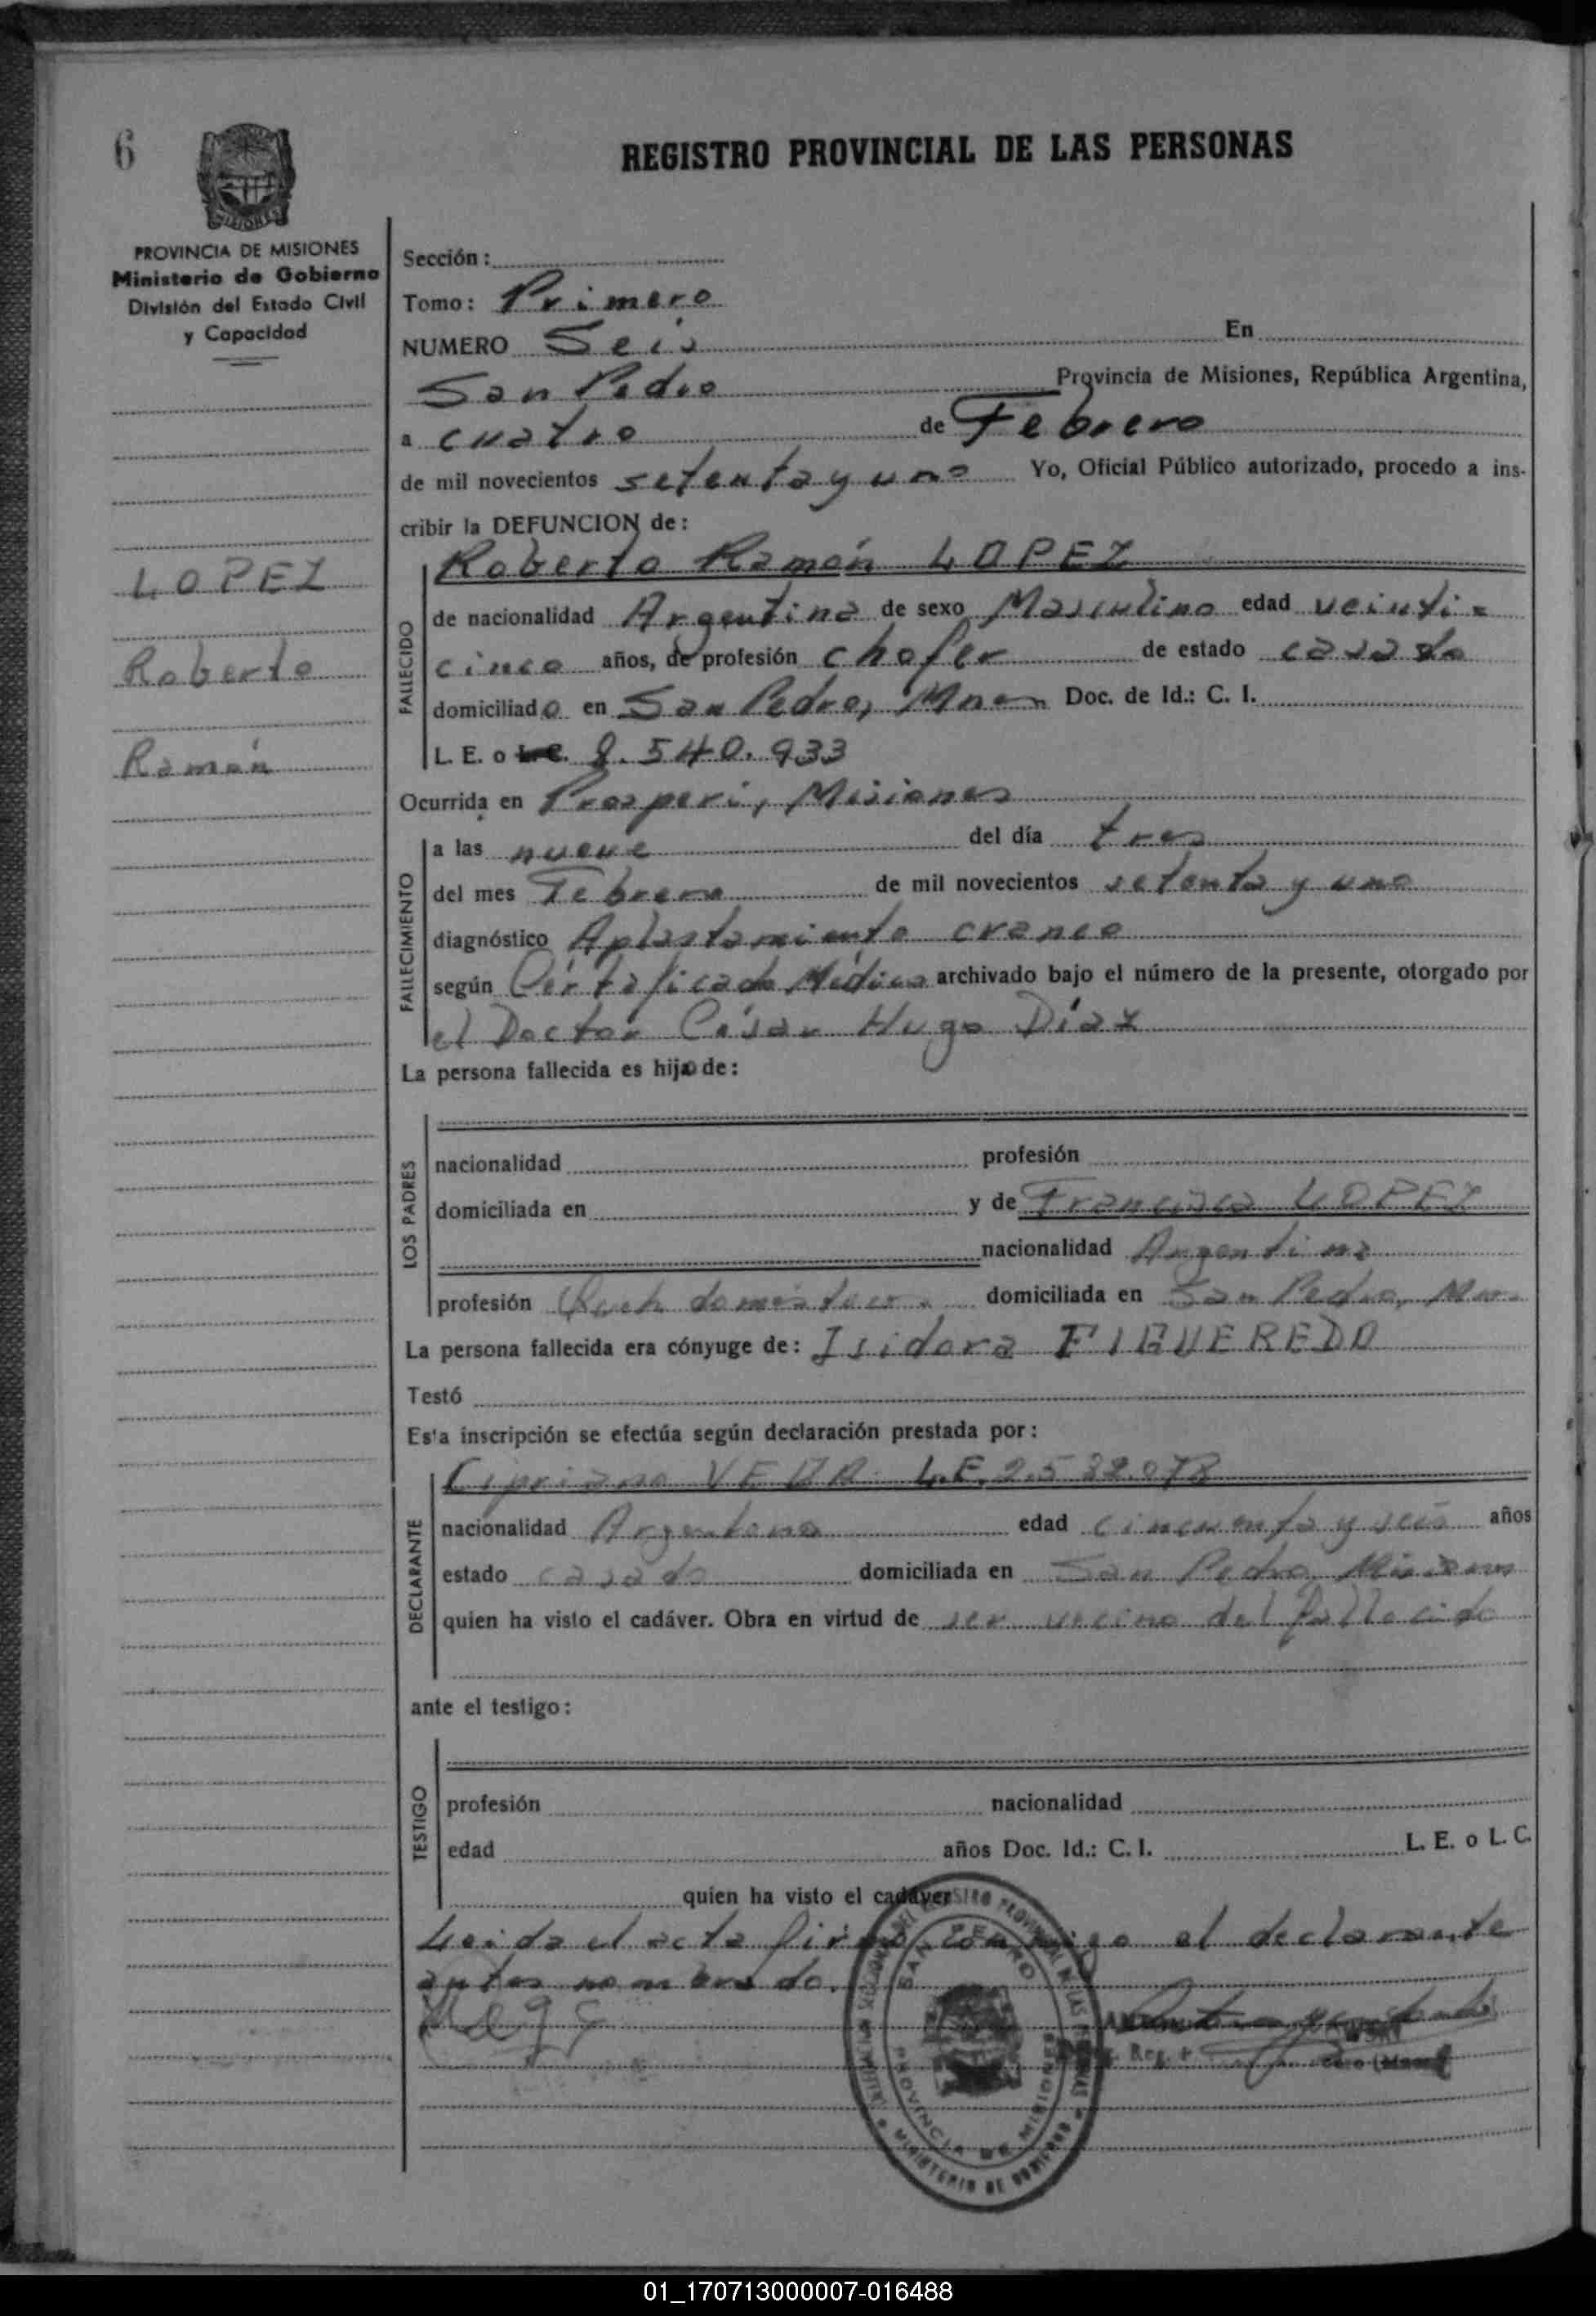 6
REGISTRO PROVINCIAL DE LAS PERSONAS
MISIONES
PROVINCIA DE MISIONES
Ministerio de Gobierno
División del Estado Civil
y Capacidad
LOPEZ
Roberto
Ramón
Sección:
Tomo: Primero
NUMERO Seis En
San Pedro Provincia de Misiones, República Argentina,
a cuatro de Febrero
de mil novecientos setenta y uno Yo, Oficial Público autorizado, procedo a ins-
cribir la DEFUNCION de:
Roberto Ramón LOPEZ
FALLECIDO
de nacionalidad Argentina de sexo Masculino edad veinti=
cinco años, de profesión chofer de estado casado
domiciliado en San Pedro, Mnes Doc. de Id.: C. I.
L. E. o 8.540.933
Ocurrida en Prosperi, Misiones
FALLECIMIENTO
a las nueve del día tres
del mes Febrero de mil novecientos setenta y uno
diagnóstico Aplastamiento craneo
según Certificado Médico archivado bajo el número de la presente, otorgado por
el Doctor César Hugo Díaz
La persona fallecida es hijo de:
LOS PADRES
nacionalidad profesión
domiciliada en y de Francisca LOPEZ
nacionalidad Argentina
profesión domiciliada en San Pedro, Mnes
La persona fallecida era cónyuge de: Isidora FIGUEREDO
Testó
Esta inscripción se efectúa según declaración prestada por:
Cipriano L.E. 2.532.078
DECLARANTE
nacionalidad Argentina edad cincuenta y seis años
estado casado domiciliada en San Pedro, Misiones
quien ha visto el cadáver. Obra en virtud de ser vecino del fallecido
ante el testigo:
TESTIGO
profesión nacionalidad
edad años Doc. Id.: C. I. L. E. o L. C.
quien ha visto el cadáver
Leida el acta firma conmigo el declarante
antes nombrado.
SAN PEDRO
PROVINCIA DE MISIONES
MINISTERIO DE GOBIERNO
01_170713000007-016488